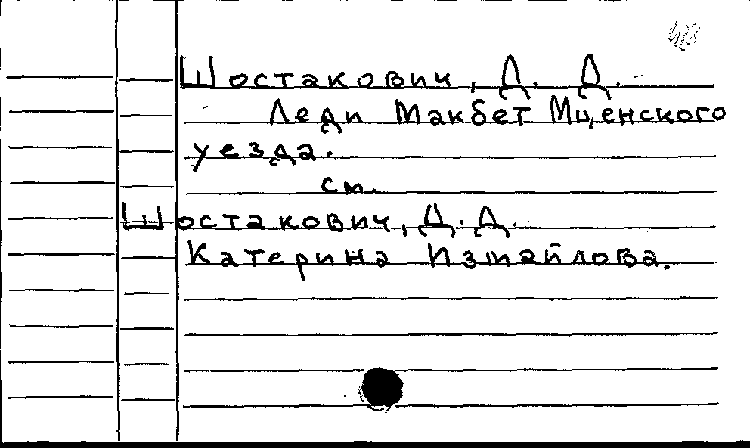 Шостакович, Д. Д.
Леди Макбет Мценского
уезда.
см.
Шостакович, Д. Д.
Катерина Измайлова.